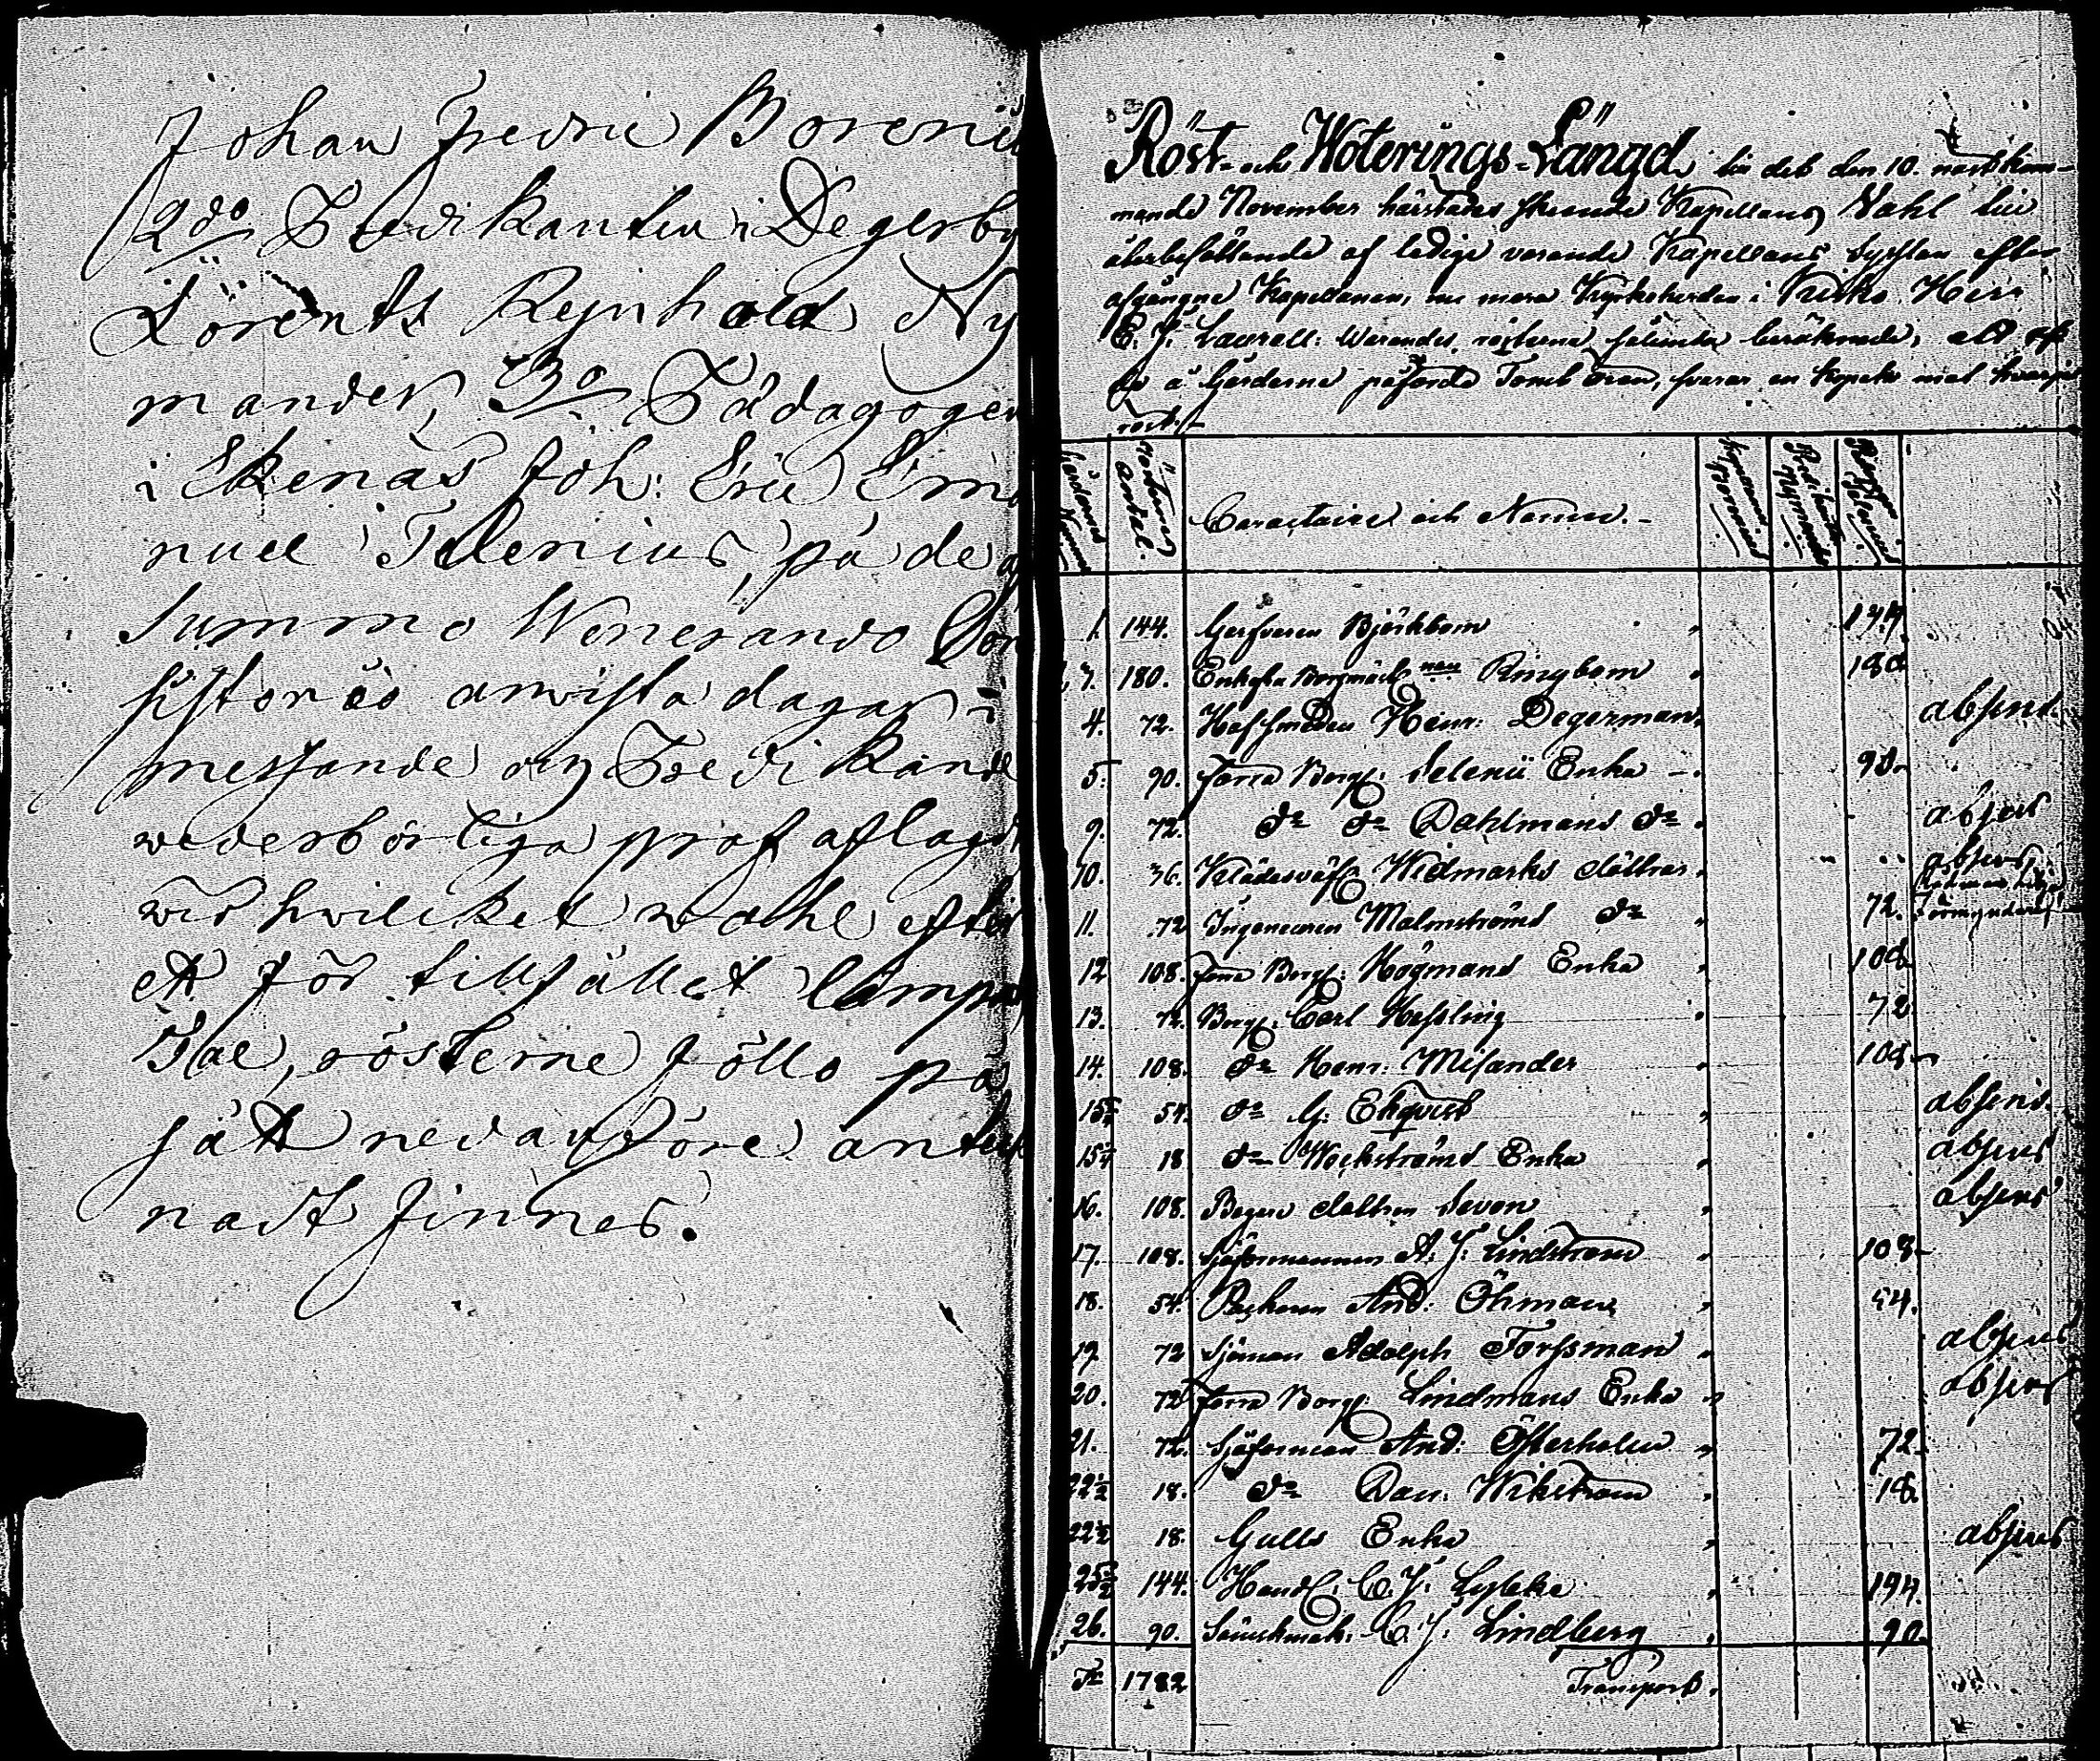 Johan Fredric Boreni
2do Predikanten i Degerby
Lorents Reinhold Ny
mander, 3o Pädagogen
i Ekenäs Joh: Eric Em
nuel Telenius, på de af
Summo Wenerando Con
sistorio anvista dagar i
messande og Predikande
wederbörliga prof aflagdt
wid hvilcket wahl efter
ett för tillfället lämpa
Tal, rösterne föllo på
sätt nedanföre anteck
nadt finnes.
Röst- och Woterings-Längd, för det den 10. nästkom-
mande November härstädes skeende Kapellans Wahl till
återbesättande af ledige varande Kapellans Sysslan efter
afgångne Kapellanen, nu mera Kyrkoherden i Kisko Herr
E. J. Laurell: Warandes rösterne sålunda beräknade, att af
de å Gårderne påförde Tomtören, svarar en kopek mot hvarje
röst.
Gårdens Nummer Rösternes antal. Caracterer och Namn. Borenius Predikanten Nymander
1. 144. Garfvaren Björkbom 144.
7. 180. Enkefru Borgmäst. Ringbom 180
4. 72. Hofsmeden Henr: Degerman absens.
5. 90. Förra Borg: Selenii Enka 90
9. 72. do do Dahlmans do absens
10. 36. Klädesväf: Widmarks döttrar absens
11. 72 Ingeneuren Malmströms do 72. Förmyndare
12 108. Förra Borg: Högmans Enka 108
13. 72. Borg: Carl Hessling 72
14. 108. do Henr: Misander 108
15 54. do G: Ekqvist absens.
15 18 do Weckströms Enka absens
16. 108. Bagare dottren Sevon absens
17. 108. Sjöformannen A: J: Lindström 108
18. 54. Backaren And: Öhman 54.
19 72 Sjöman Adolph Forssman absens
20. 72 Förra Borg: Lindmans Enka absens
21. 72. Sjöforman And: Österholm 72.
22½ 18. do Dan: Wikström 18.
22½ 18. Gulls Enka absens
25 144. Handl: C. J: Lybcke 144.
26. 90. C: J: Lindberg 90.
1782 Transport.